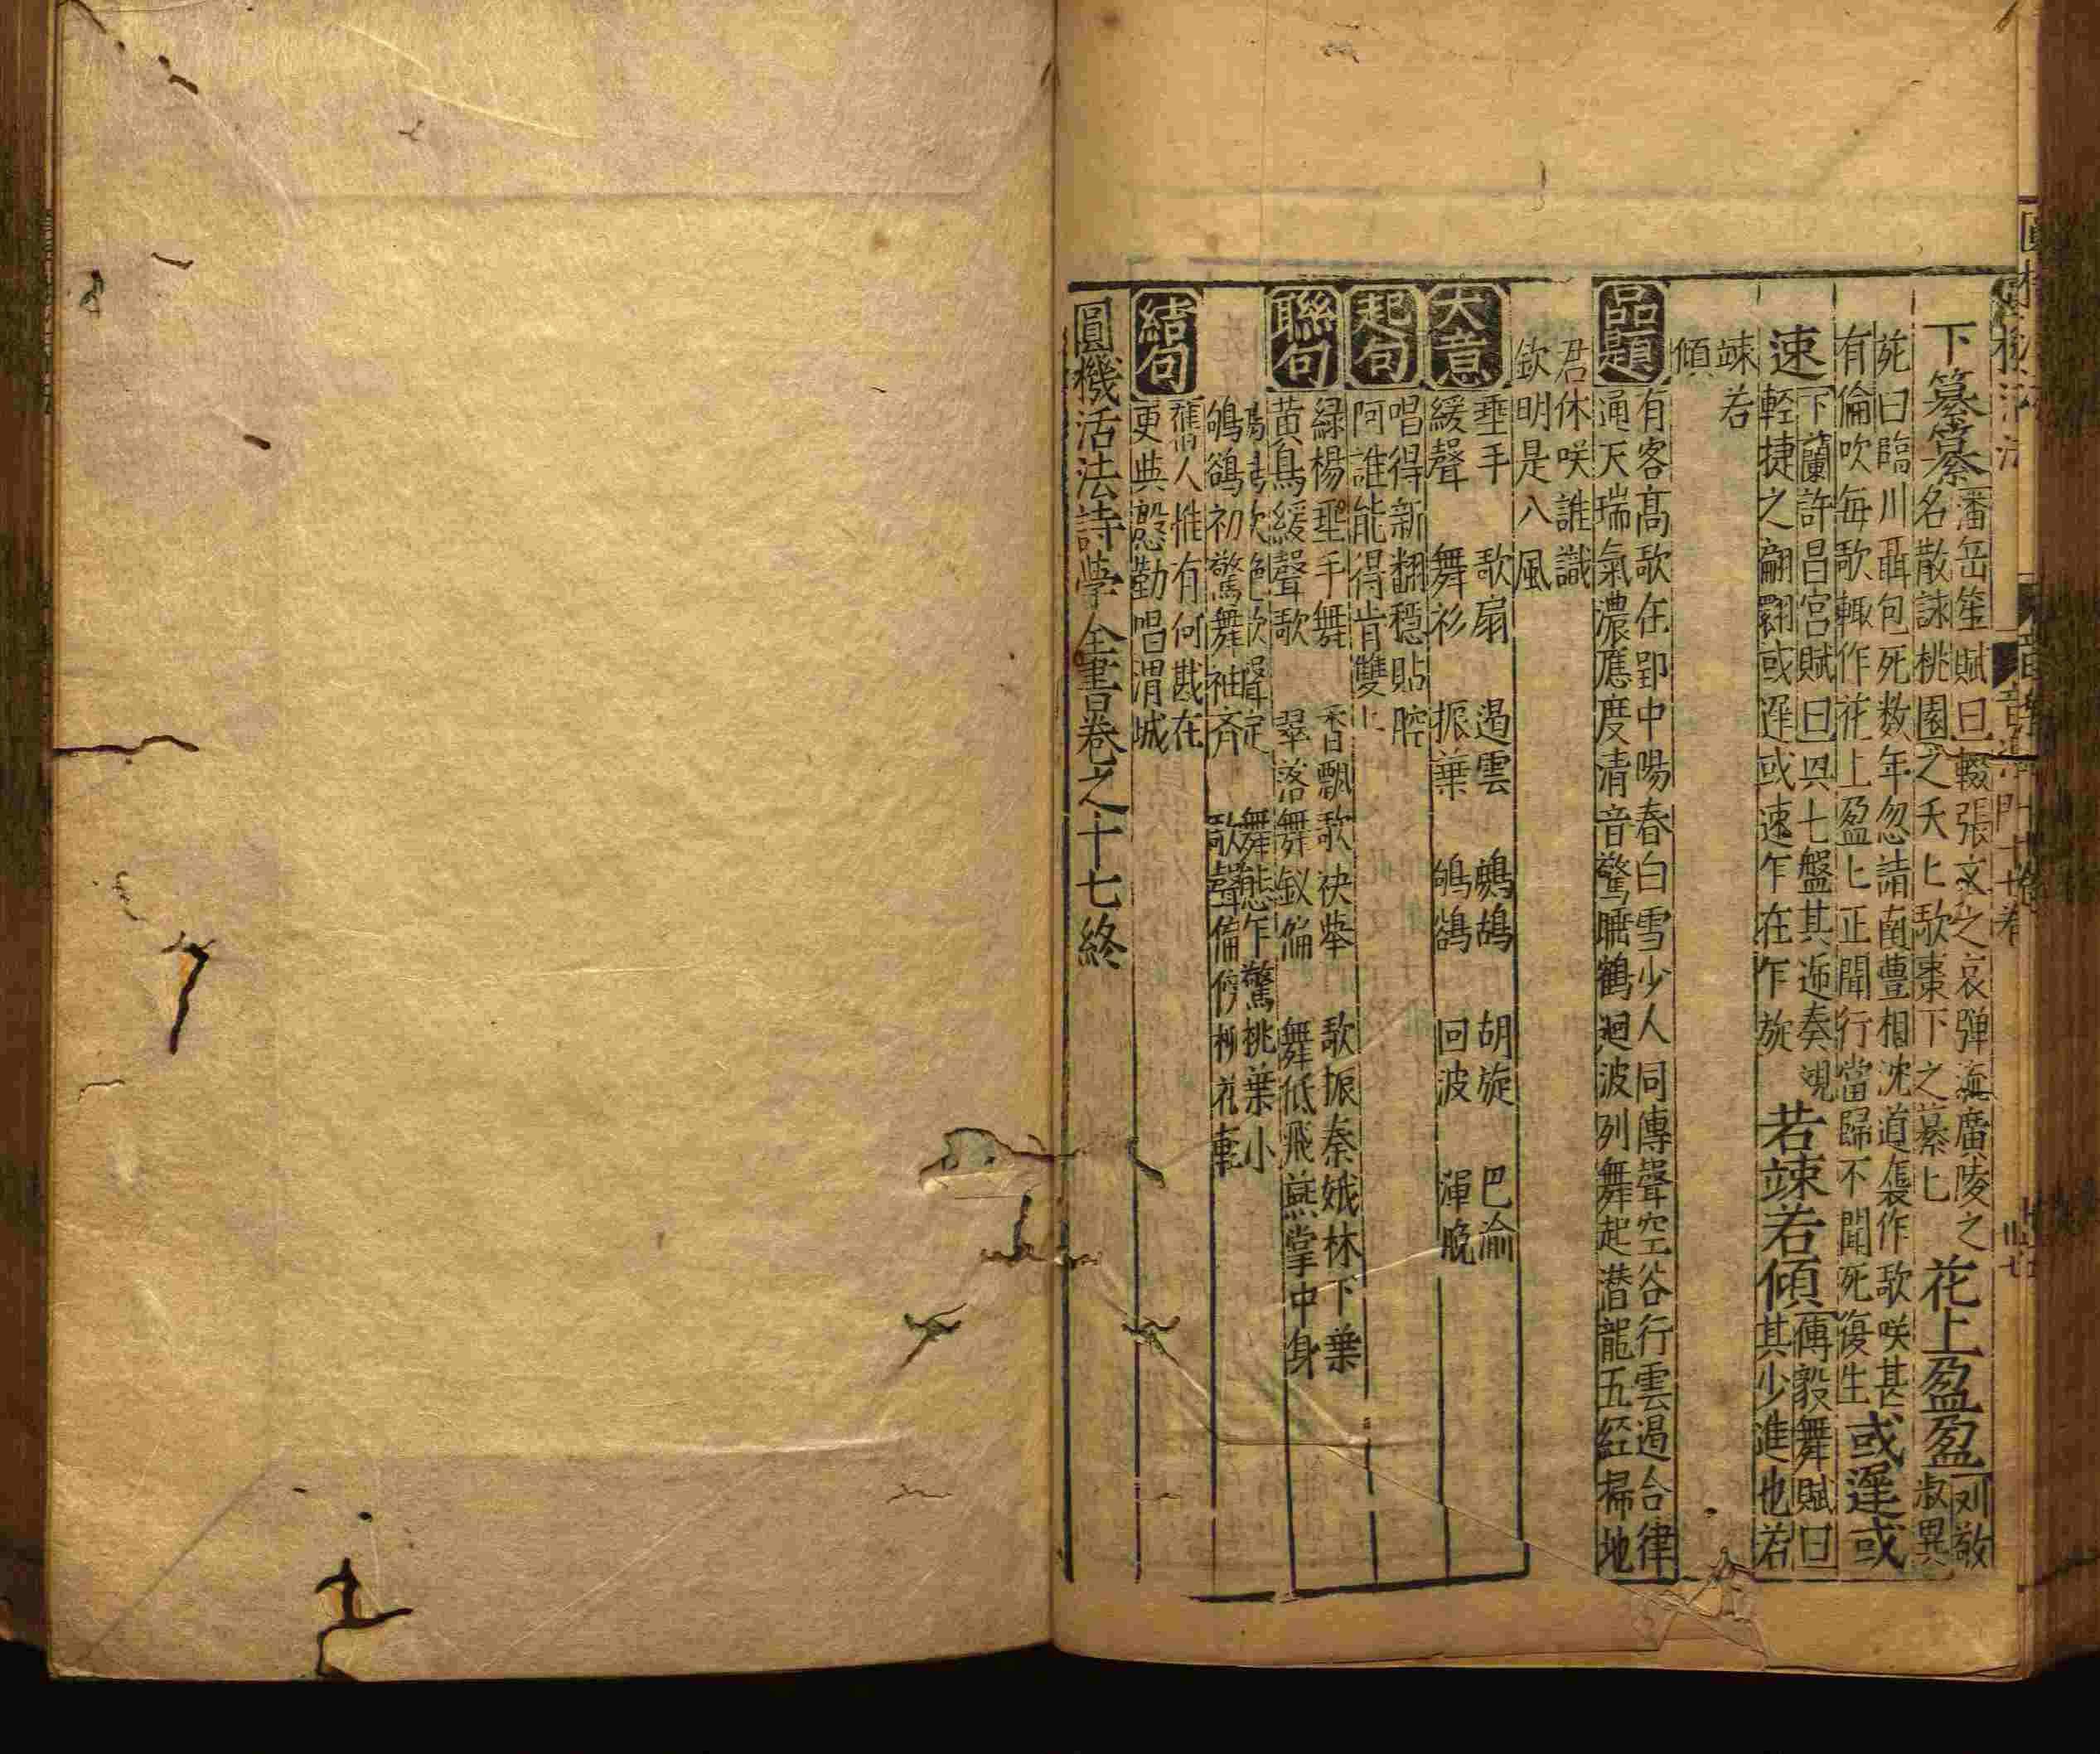 下纂纂潘岳笙賦曰輟張文之哀彈流廣陵之
名散詠桃園之夭〻歌棗下之纂〻
花上盈盈刘敬
叔異
苑曰臨川聶包死数年忽詣南豊相沈道襲作歌咲甚
有倫吹每歌輒作花上盈〻正聞行當歸不聞死復生
或遲或
速下蘭許昌宮賦曰與七盤其遞奏覌
輕捷之翩翾或遲或速乍在乍旋
若竦若傾傅毅舞賦曰
其少進也若
竦若
傾
品題
有客髙歌在郢中陽春白雪少人同傳聲空谷行雲遏合律
通天瑞氣濃應度清音驚曉鶴廻波列舞起潜龍五紅掃地
君休咲誰識
欽明是八風
大意
垂手 歌扇 遏雲 鷓鴣 胡旋 巴渝
緩聲 舞衫 振葉 鴝鵒 回波 渾晚
起句
唱得新翻穩貼腔
阿誰能得肯雙〻
聯句
緑楊垂手舞 香飄歌袂舉 歌振秦娥林下葉
黄鳥緩聲歌 翠落舞釵偏 舞低飛燕掌中身
鷓鴣歌絶歌聲定 舞態乍驚桃葉小
鴝鵒初驚舞袖齊 歌聲偏傍柳花輕
結句
舊人惟有何戡在
更與慇勤唱渭城
圓機活法詩學全書卷之十七終